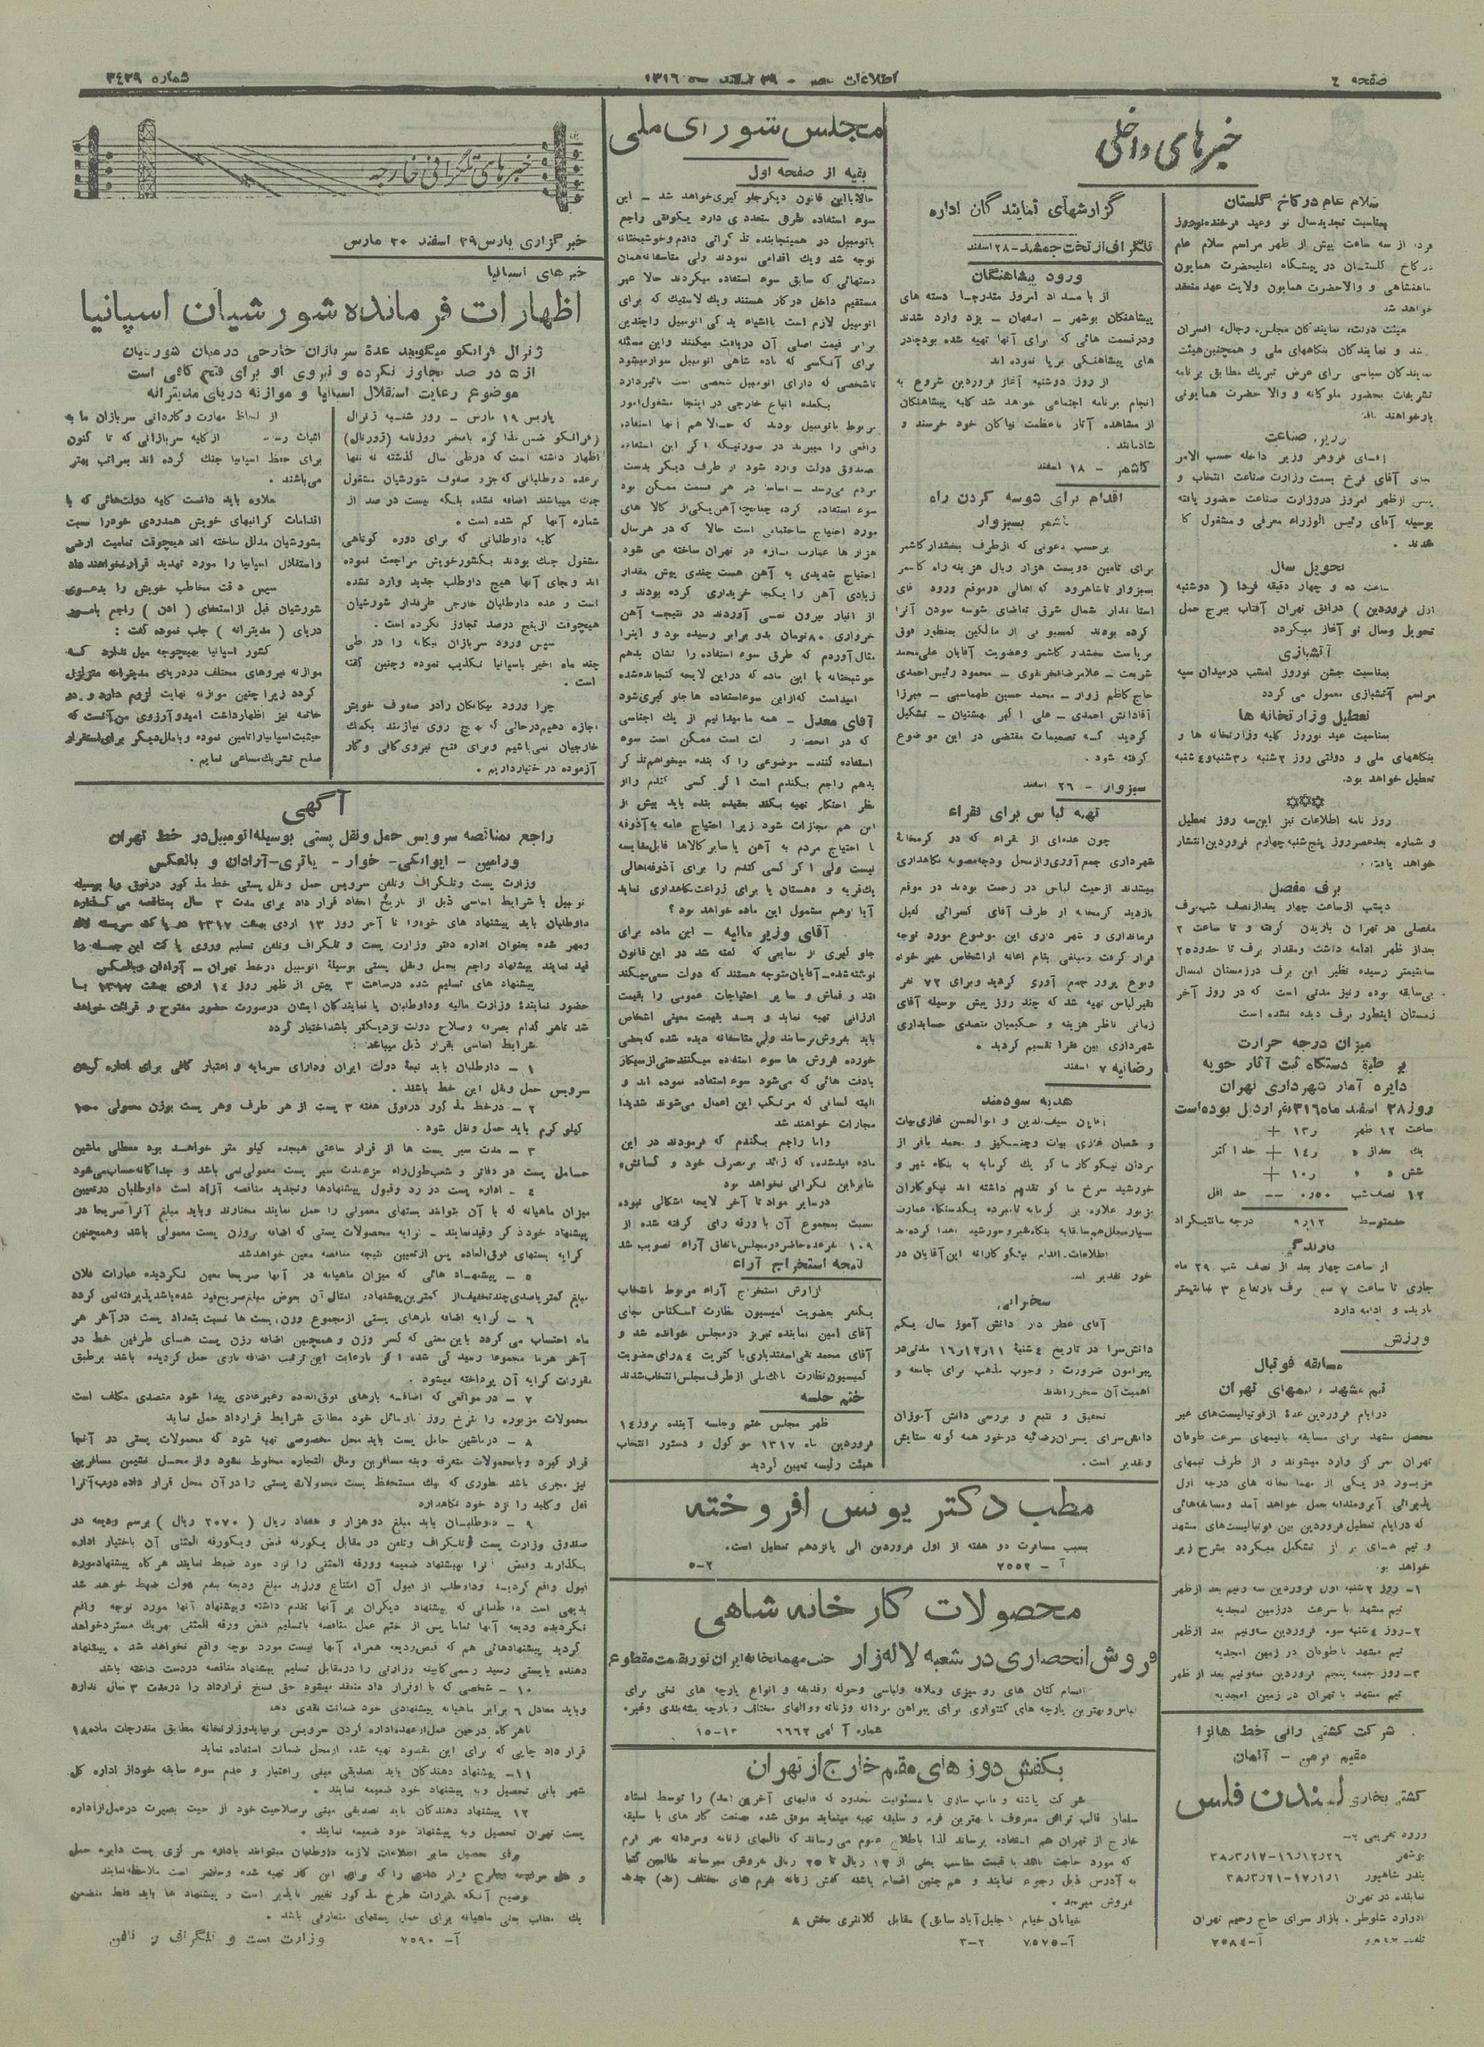 صفحه ٤
اطلاعات
۲۹
۱۳۱۶
شماره ۳٤۳۹
خبرهای داخلی
سلام عام در کاخ گلستان
بمناسبت تجدید سال نو وعید فرخنده نوروز
از سه ساعت پیش از ظهر مراسم سلام عام
کاخ گلستان در پیشگاه اعلیحضرت همایون
شاهنشاهی و والاحضرت همایون ولایت عهد منعقد
خواهد شد
هیئت دولت، نمایندگان مجلس، رجال، افسران
و نمایندگان بنگاههای ملی و همچنین هیئت
نمایندگان سیاسی برای عرض تبریک مطابق برنامه
تشریفات بحضور ملوکانه و والا حضرت همایونی
بار خواهند یافت
وزیر صناعت
آقای فروهر وزیر داخله حسب الامر
آقای فرخ بسمت وزارت صناعت انتخاب و
پیش از ظهر امروز در وزارت صناعت حضور یافته
بوسیله آقای رئیس الوزراء معرفی و مشغول کار
شدند .
تحویل سال
ساعت ده و چهار دقیقه فردا ( دوشنبه
اول فروردین ) در افق تهران آفتاب ببرج حمل
تحویل و سال نو آغاز میگردد
آتشبازی
بمناسبت جشن نوروز امشب در میدان سپه
مراسم آتشبازی معمول می گردد
تعطیل وزارتخانه ها
بمناسبت عید نوروز کلیه وزارتخانه ها و
بنگاههای ملی و دولتی روز ۲ شنبه و ۳ شنبه و ٤ شنبه
تعطیل خواهد بود.
روز نامه اطلاعات نیز این سه روز تعطیل
و شماره بعد عصر روز پنج شنبه چهارم فروردین انتشار
خواهد یافت.
برف مفصل
دیشب از ساعت چهار بعد از نصف شب برف
مفصلی در تهران باریدن گرفته و تا ساعت ۲
بعد از ظهر ادامه داشت و مقدار برف تا حدود ۲۵
سانتیمتر رسیده نظیر این برف در زمستان امسال
بی سابقه بوده و نیز مدتی است که در روز آخر
زمستان اینطور برف دیده نشده است
میزان درجه حرارت
دستگاه ثبت آثار جویه
دایره آمار شهرداری تهران
روز ۲۸ اسفند ماه ۳۱۶ بقرار ذیل بوده است
ساعت ۱۲ ظهر ۱۳ +
۱٤ + حد اکثر
شش ۱۰ +
۱۲ نصف شب حد اقل
حد متوسط ۹٫۱۲ درجه سانتیگراد
بارندگی
از ساعت چهار بعد از نصف شب ۲۹ ماه
جاری تا ساعت ۷ صبح برف بارتفاع ۳ سانتیمتر
باریده و ادامه دارد
ورزش
مسابقه فوتبال
تیم مشهد و تیمهای تهران
در ایام فروردین عدهٔ از فوتبالیست های غیر
محصل مشهد برای مسابقه با تیمهای سرعت طوفان
تهران مرکز وارد میشوند و از طرف تیمهای
مزبور در یکی از مهمانخانه های درجه اول
پذیرائی آبرومندانه بعمل خواهد آمد و مسابقه هائی
که در ایام تعطیل فروردین بین فوتبالیست های مشهد
و تیم های مرکز تشکیل میگردد بشرح زیر
خواهد بود
۱- روز ۲ شنبه اول فروردین سه و نیم بعد از ظهر
تیم مشهد با سرعت در زمین امجدیه
۲- روز ٤ شنبه سوم فروردین سه و نیم بعد از ظهر
تیم مشهد با طوفان در زمین امجدیه
۳- روز جمعه پنجم فروردین سه و نیم بعد از ظهر
تیم مشهد با تهران در زمین امجدیه
شرکت کشتی رانی خط هانزا
مقیم برمن - آلمان
کشتی بخاری لندن فلس
ورود تقریبی
بوشهر ۱۶/۱۲/۲۶-۳۸/۳/۱۷
بندر شاهپور ۱۷/۱/۱-۳۸/۳/۲۱
نماینده در تهران
ادوارد شلوطر . بازار سرای حاج رحیم تهران
آ-۷۵۸٤
گزارشهای نمایندگان اداره
تلگراف از تخت جمشید - ۲۸ اسفند
ورود پیشاهنگان
از بامداد امروز متدرجاً دسته های
پیشاهنگان بوشهر - اصفهان - یزد وارد شدند
و در قسمت هائی که برای آنها تهیه شده بود چادر
های پیشاهنگی برپا نموده اند
از روز دوشنبه آغاز فروردین شروع به
انجام برنامه اجتماعی خواهد شد کلیه پیشاهنگان
از مشاهده آثار باعظمت نیاکان خود خرسند و
شادمانند .
کاشمر - ۱۸ اسفند
اقدام برای شوسه کردن راه
کاشمر بسبزوار
برحسب دعوتی که از طرف بخشدار کاشمر
برای تامین دویست هزار ریال هزینه راه کاشمر
سبزوار تا شاهرود که اهالی در موقع ورود آقای
استاندار شمال شرق تقاضای شوسه نمودن آنرا
کرده بودند کمیسیونی از مالکین بمنظور فوق
بریاست بخشدار کاشمر و عضویت آقایان علی محمد
شریعت - غلامرضا فخر نقوی - محمود رئیس احمدی
حاج کاظم زوار - محمد حسین طهماسبی - میرزا
آقادانش احمدی - علی اکبر بهشتیان - تشکیل
گردید که تصمیمات مقتضی در این موضوع
گرفته شود .
سبزوار - ۲۶ اسفند
تهیه لباس برای فقراء
چون عده‌ای از فقراء که در گرمخانهٔ
شهرداری جمع آوری و از محل بودجه مصوبه نگاهداری
میشدند از حیث لباس در زحمت بودند در موقع
بازدید گرمخانه از طرف آقای کسرائی کفیل
فرمانداری و شهرداری این موضوع مورد توجه
قرار گرفت و مبلغی بنام اعانه از اشخاص خیرخواه
و نوع پرور جمع آوری گردید و برای ۷۲ نفر
فقیر لباس تهیه شد که چند روز پیش بوسیله آقای
زمانی ناظر هزینه و حکیمیان متصدی حسابداری
شهرداری بین فقرا تقسیم گردید .
رضائیه ۷ اسفند
هدیه سودمند
آقایان سیف الدین و ابوالحسن غازی بیات
و شعبان غازی بیات و چنگیز و محمد باقر از
مردان نیکوکار ماکو یک گرمابه به بنگاه شیر و
خورشید سرخ ماکو تقدیم داشته اند نیکوکاران
مزبور علاوه بر گرمابه نامبرده یکدستگاه عمارت
بسیار مجلل هم سابقا به بنگاه شیر و خورشید اهدا کرده‌اند
اطلاعات - اقدام نیکوکارانه این آقایان در
خور تقدیر است
سخنرانی
آقای عطر دار دانش آموز سال یکم
دانش سرا در تاریخ ٤ شنبهٔ ۱۶/۱۲/۱۱ مدتی در
پیرامون ضرورت و وجوب مذهب برای جامعه و
اهمیت آن سخن راندند
تحقیق و تتبع و بررسی دانش آموزان
دانش سرای پسران رضائیه در خور همه گونه ستایش
و تقدیر است .
مجلس شورای ملی
بقیه از صفحه اول
حالا با این قانون دیگر جلوگیری خواهد شد - این
سوء استفاده طرق متعددی دارد یکوقتی راجع
باتومبیل در همینجا بنده تذکراتی دادم و خوشبختانه
توجه شد و یک اقدامی نمودند ولی متاسفانه همان
دستهائی که سابق سوء استفاده میکردند حالا غیر
مستقیم داخل در کار هستند و یک لاستیک که برای
اتومبیل لازم است با اشیاء یدکی اتومبیل را چندین
برابر قیمت اصلی آن دریافت میکنند و این مسئله
برای آنکسی که ماده شاهی اتومبیل سوار میشود
تا شخصی که دارای اتومبیل شخصی است تاثیر دارد
یکعده اتباع خارجی در اینجا مشغول امور
مربوط باتومبیل بودند که حالا هم آنها استفاده
واقعی را میبرند در صورتیکه اگر این استفاده
صندوق دولت وارد شود از طرف دیگر بدست
مردم می‌رسد - اساسا در هر قسمت ممکن بود
سوء استفاده کرد، چنانچه آهن یکی از کالا های
مورد احتیاج ساختمانی است حالا که در هر سال
هزارها عمارت تازه در تهران ساخته می شود
احتیاج شدیدی به آهن هست چندی پیش مقدار
زیادی آهن را یکجا خریداری کرده بودند و
از انبار بیرون نمی آوردند در نتیجه آهن
خرواری ۸۰ تومان بدو برابر رسیده بود و اینرا
مثال آوردم که طرق سوء استفاده را نشان بدهم
خوشبختانه با این ماده که در این لایحه گنجانده شده
امید است که از این سوء استفاده ها جلوگیری شود
آقای معدل - همه ما میدانیم از یک اجناسی
که در انحصار دولت است ممکن است سوء
استفاده کنند - موضوعی را که بنده میخواهم تذکر
بدهم راجع بگندم است اگر کسی گندم را از
نظر احتکار تهیه بکند بعقیده بنده باید بیش از
این هم مجازات شود زیرا احتیاج عامه به آذوقه
با احتیاج مردم به آهن یا سایر کالاها قابل مقایسه
نیست ولی اگر کسی گندم را برای آذوقه اهالی
یک قریه و دهستان یا برای زراعت نگاهداری نماید
آیا او هم مشمول این ماده خواهد بود ؟
آقای وزیر مالیه - این ماده برای
جلوگیری از معایبی که گفته شد در این قانون
نوشته شده - آقایان متوجه هستند که دولت سعی میکند
قند و قماش و سایر احتیاجات عمومی را بقیمت
ارزانی تهیه نماید و بعد بقیمت معینی اشخاص
باید بفروش برسانند ولی متاسفانه دیده شده که بعضی
خورده فروش ها سوء استفاده میکنند حتی از سیگار
یادداشت هائی که می‌شود سوء استفاده نموده اند و
البته کسانی که مرتکب این اعمال می‌شوند شدیدا
مجازات خواهند شد
و اما راجع بگندم که فرمودند در این
ماده قید شده، که زائد بر مصرف خود و کسانش،
بنابر این نگرانی نخواهد بود
در سایر مواد تا آخر لایحه اشکالی نبوده
نسبت بمجموع آن با ورقه رای گرفته شده از
۱۰۹ نفر عده حاضر در مجلس باتفاق آراء تصویب شد
نتیجه استخراج آراء
گزارش استخراج آراء مربوط بانتخاب
یکنفر بعضویت کمیسیون نظارت اسکناس بجای
آقای امین نماینده تبریز در مجلس خوانده شد و
آقای محمد تقی اسفندیاری با کثریت ٨٤ رای بعضویت
کمیسیون نظارت بانک ملی از طرف مجلس انتخاب شدند
ختم جلسه
ظهر مجلس ختم و جلسه آینده بروز ۱٤
فروردین ماه ۱۳۱۷ موکول و دستور انتخاب
هیئت رئیسه تعیین گردید
مطب دکتر یونس افروخته
بسبب مسافرت دو هفته از اول فروردین الی پانزدهم تعطیل است.
آ - ۷۵۵۲ ۲-۵
محصولات کارخانه شاهی
فروش انحصاری در شعبه لاله‌زار جنب مهمانخانه ایران نو بقیمت مقطوع
اقسام کتان های رومیزی و ملافه و لباسی و حوله و قدیفه و انواع پارچه های نخی برای
لباس و بهترین پارچه های کشواری برای پیراهن مردانه و زنانه و والهای مختلف و پارچه پشه بندی و غیره
شماره آگهی ۶۶۶۲ ۱۳-۱۵
بکفش دوزهای مقیم خارج از تهران
شرکت پاشنه و قالب سازی با مسئولیت محدود که قالبهای آخرین (مد) را توسط استاد
سلمان قالب تراش معروف با بهترین فرم و سلیقه تهیه مینماید موفق شده صنعت کارهای با سلیقه
خارج از تهران هم استفاده برساند لذا باطلاع عموم می رساند که قالبهای زنانه و مردانه هر فرم
که مورد حاجت باشد با قیمت مناسب یعنی از ۱۲ ریال تا ۲۵ ریال بفروش میرساند طالبین کتبا
به آدرس ذیل رجوع نمایند و هم چنین اقسام پاشنه کفش زنانه بفرم های مختلف (مد) جدید
بفروش میرسد .
خیابان خیام (جلیل آباد سابق) مقابل کلانتری بخش ۸
آ-۷۵۷۵ ۲-۳
خبرهای تلگرافی خارجه
خبرگزاری پارس ۲۹ اسفند ۲۰ مارس
خبرهای اسپانیا
اظهارات فرمانده شورشیان اسپانیا
ژنرال فرانکو میگوید عدهٔ سربازان خارجی در میان شورشیان
از ۵ در صد تجاوز نکرده و نیروی او برای فتح کافی است
موضوع رعایت استقلال اسپانیا و موازنه دریای مدیترانه
پاریس ۱۹ مارس - روز شنبه ژنرال
(فرانکو) ضمن مذاکره با مخبر روزنامه (ژورنال)
اظهار داشته است که در طی سال گذشته نه تنها
بر عده داوطلبانی که جزو صفوف شورشیان مشغول
جنگ میباشند اضافه نشده بلکه بیست در صد از
شماره آنها کم شده است .
کلیه داوطلبانی که برای دوره کوتاهی
مشغول جنگ بودند بکشور خویش مراجعت نموده
اند و بجای آنها هیچ داوطلب جدید وارد نشده
است و عده داوطلبان خارجی طرفدار شورشیان
هیچوقت از پنج درصد تجاوز نکرده است .
سپس ورود سربازان بیگانه را در طی
چند ماه اخیر باسپانیا تکذیب نموده و چنین گفته
است .
چرا ورود بیگانگان را در صفوف خویش
اجازه دهیم در حالی که بهیچ روی نیازمند بکمک
خارجیان نمی‌باشیم و برای فتح نیروی کافی و کار
آزموده در اختیار داریم .
از لحاظ مهارت و کاردانی سربازان ما به
اثبات رسیده از کلیه سربازانی که تا کنون
برای حفظ اسپانیا جنگ کرده اند بمراتب بهتر
می‌باشند .
علاوه باید دانست کلیه دولت‌هائی که با
اقدامات گرانبهای خویش همدردی خود را نسبت
بشورشیان مدلل ساخته اند هیچوقت تمامیت ارضی
و استقلال اسپانیا را مورد تهدید قرار نخواهند داد
سپس دقت مخاطب خویش را بدعوی
شورشیان قبل از استعفای ( ادن ) راجع بامور
دریای ( مدیترانه ) جلب نموده گفت :
کشور اسپانیا بهیچوجه میل ندارد که
موازنه نیروهای مختلف در دریای مدیترانه متزلزل
گردد زیرا چنین موازنه نهایت لزوم دارد و در
خاتمه نیز اظهار داشت امید و آرزوی من آنست که
حیثیت اسپانیا را تامین نموده و با ملل دیگر برای استقرار
صلح تشریک مساعی نمایم .
آگهی
راجع بمناقصه سرویس حمل و نقل پستی بوسیله اتومبیل در خط تهران
ورامین - ایوانکی - خوار - یاتری - آرادان و بالعکس
وزارت پست و تلگراف و تلفن سرویس حمل و نقل پستی خط مذکور در فوق را بوسیله
اتومبیل با شرایط اساسی ذیل از تاریخ انعقاد قرار داد برای مدت ۳ سال بمناقصه می گذارد
داوطلبان باید پیشنهاد های خود را تا آخر روز ۱۳ اردی بهشت ۱۳۱۷ در پاکت سربسته لاک
و مهر شده بعنوان اداره دفتر وزارت پست و تلگراف و تلفن تسلیم و روی پاکت این جمله را
قید نمایند پیشنهاد راجع بحمل و نقل پستی بوسیلهٔ اتومبیل در خط تهران - آرادان و بالعکس
پیشنهاد های تسلیم شده در ساعت ۳ پیش از ظهر روز ۱٤ اردی بهشت ۱۳۱۷ با
حضور نمایندهٔ وزارت مالیه و داوطلبان یا نمایندگان ایشان در صورت حضور مفتوح و قرائت خواهد
شد تا هر کدام بصرفه و صلاح دولت نزدیکتر باشد اختیار گردد
شرایط اساسی بقرار ذیل میباشد :
۱ - داوطلبان باید تبعهٔ دولت ایران و دارای سرمایه و اعتبار کافی برای اداره کردن
سرویس حمل و نقل این خط باشند .
۲ - در خط مذکور در فوق هفته ۳ پست از هر طرف و هر پست بوزن معمولی ۱۰۰
کیلو گرم باید حمل و نقل شود .
۳ - مدت سیر پست ها از قرار ساعتی هیجده کیلو متر خواهد بود معطلی ماشین
حامل پست در دفاتر و شعب طول راه جزء مدت سیر پست معمولی نمی باشد و جداگانه حساب می شود
٤ - اداره پست در رد و قبول پیشنهادها و تجدید مناقصه آزاد است داوطلبان در تعیین
میزان ماهیانه که با آن بتوانند پستهای معمولی را حمل نمایند مختارند و باید مبلغ آنرا صریحا در
پیشنهاد خود ذکر و قید نمایند - کرایه محصولات پستی که اضافه بر وزن پست معمولی باشد و همچنین
کرایه پستهای فوق العاده پس از تعیین نتیجه مناقصه معین خواهد شد
۵ - پیشنهاد هائی که میزان ماهیانه در آنها صریحا معین نگردیده عبارات فلان
مبلغ کمتر یا صدی چند تخفیف از کمترین پیشنهاد و امثال آن بعوض مبلغ صریح قید شده باشد پذیرفته نمی گردد
۶ - کرایه اضافه بارهای پستی از مجموع وزن پست ها نسبت بتعداد پست در آخر هر
ماه احتساب می گردد باین معنی که کسر وزن و همچنین اضافه وزن پست های طرفین خط در
آخر هر ماه مجموعا رسیدگی شده اگر با رعایت این ترتیب اضافه باری حمل گردیده باشد برطبق
مقررات کرایه آن پرداخته میشود .
۷ - در مواقعی که اضافه بارهای فوق العاده و غیر عادی پیدا شود متصدی مکلف است
محمولات مزبوره را بنرخ روز با وسائل خود مطابق شرایط قرارداد حمل نماید
۸ - در ماشین حامل پست باید محل مخصوصی تهیه شود که محمولات پستی در آنجا
قرار گیرد و با محمولات متفرقه و بنه مسافرین و مال التجاره مخلوط نشود و از محل نشیمن مسافرین
نیز مجزی باشد بطوری که یک مستحفظ پست محمولات پستی را در آن محل قرار داده درب آنرا
قفل و کلید را نزد خود نگاهدارد
۹ - داوطلبان باید مبلغ دو هزار و هفتاد ریال ( ۲۰۷۰ ریال ) برسم ودیعه در
صندوق وزارت پست و تلگراف و تلفن در مقابل یکورقه قبض و یکورقه المثنی آن باختیار اداره
بگذارند و قبض آنرا بپیشنهاد ضمیمه و ورقه المثنی را نزد خود ضبط نمایند هرگاه پیشنهاد مورد
قبول واقع گردیده و داوطلب از قبول آن امتناع ورزید مبلغ ودیعه بنفع دولت ضبط خواهد شد
بدیهی است داوطلبانی که پیشنهاد دیگران بر آنها تقدم داشته و پیشنهاد آنها مورد توجه واقع
نگردیده ودیعه آنها تماما پس از ختم عمل مناقصه با تسلیم قبض ورقه المثنی بهریک مسترد خواهد
گردید پیشنهادهائی هم که قبض ودیعه همراه آنها نیست مورد توجه واقع نخواهد شد . پیشنهاد
دهنده بایستی رسید رسمی کابینه وزارتی را در مقابل تسلیم پیشنهاد مناقصه در دست داشته باشد
۱۰ - شخصی که با او قرارداد منعقد میشود حق فسخ قرارداد را در مدت ۳ سال ندارد
و باید معادل ۶ برابر ماهیانه پیشنهادی خود ضمانت نقدی دهد
تا هرگاه در حین عمل از عهده اداره کردن سرویس برنیاید وزارتخانه مطابق مندرجات ماده ۱۸
قرارداد چاپی که برای این مقصود تهیه شده از محل ضمانت استفاده نماید
۱۱ - پیشنهاد دهندگان باید تصدیقی مبنی بر اعتبار و عدم سوء سابقه خود از اداره کل
شهربانی تحصیل و به پیشنهاد خود ضمیمه نمایند
۱۲ پیشنهاد دهندگان باید تصدیقی مبنی بر صلاحیت خود از حیث بصیرت در عمل از اداره
پست تهران تحصیل و به پیشنهاد خود ضمیمه نمایند .
برای تحصیل سایر اطلاعات لازمه داوطلبان میتوانند باداره مرکزی پست دایره حمل
و نقل مراجعه و طرح قرار دادی را که برای این کار تهیه شده و حاضر است ملاحظه نمایند
توضیح آنکه مقررات طرح مذکور تغییر ناپذیر است و پیشنهاد ها باید فقط متضمن
یک مطلب یعنی ماهیانه برای حمل پستهای متعارفی باشد .
آ- ۷۵۹۰ وزارت پست و تلگراف و تلفن